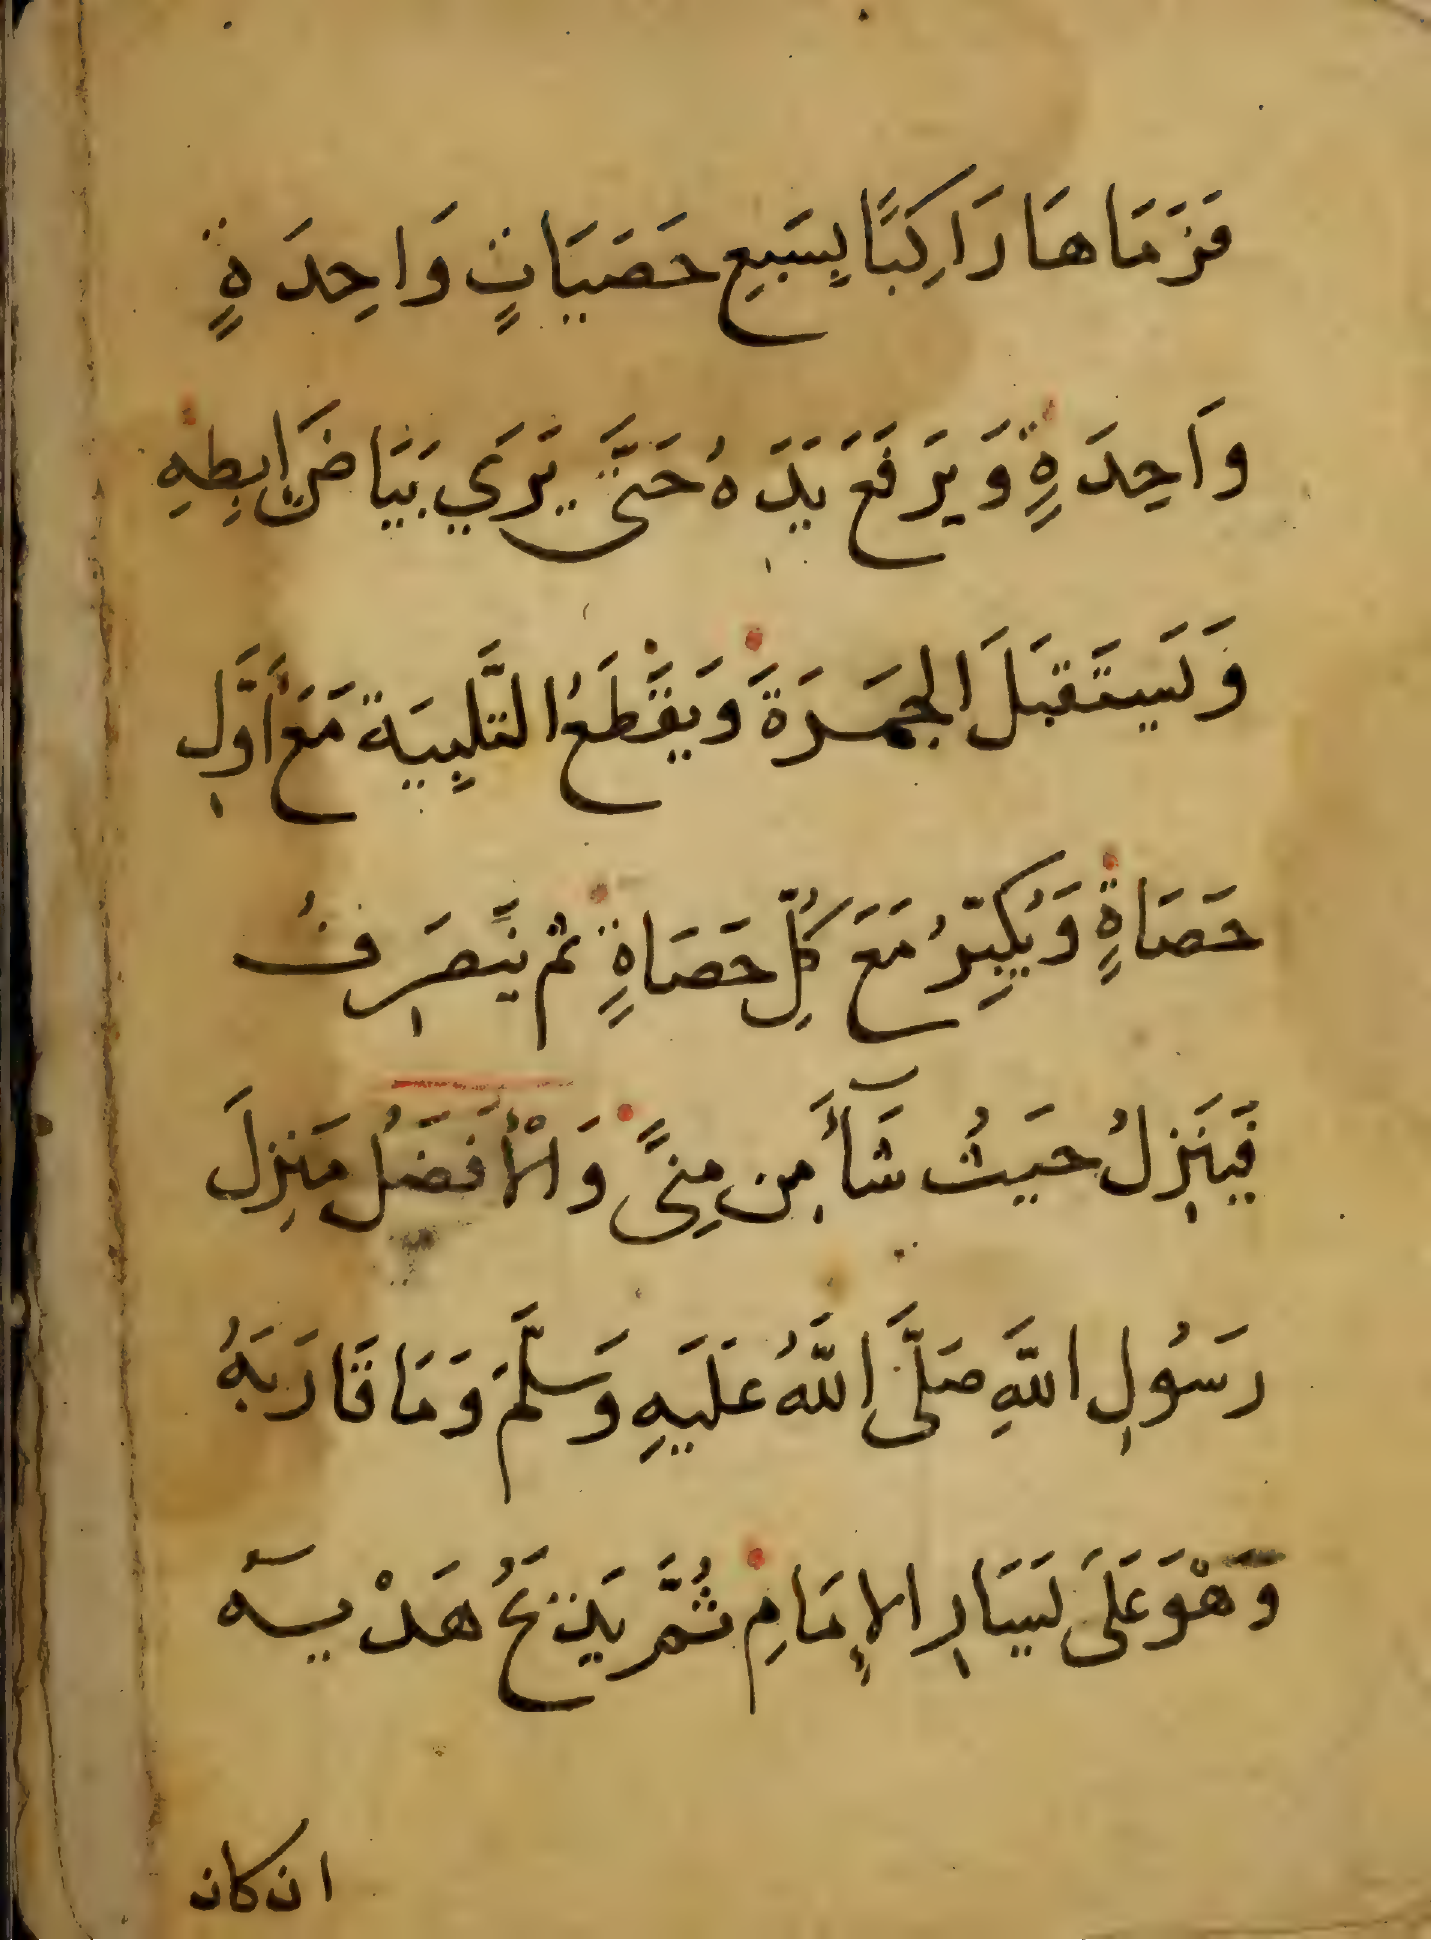 فَرَمَاهَا رَاكِبًا بِسَبعِ حَصَيَاتٍ وَاحِدَةٍ
وَاحِدَةٍ وَيَرفَعَ يَدَهُ حَتَّى يَرَي بَيَاضَ اِبِطِهِ
وَيَستَقبَلَ الجَمَرَةَ وَيَقَطَعُ التَّلبِيَة مَعَ أَوَّلِ
حَصَاةٍ وَيُكبِّرُ مَعَ كُلِّ حَصَاةٍ ثم يَنصَرِفُ
فَيَنَزِلُ حَيثُ شَآءَ مِن مِنىً وَالْأَفضَلُ مَنزِلَ
رَسُولِ اللهِ صَلَّى اللَّهُ عَلَيهِ وَسَلَّمَ وَمَا قَارَبَهُ
وَهْوَ عَلَى يَسَارِ الإِمَامِ ثُمَّ يَذبَحُ هَدْيَه
ان كان